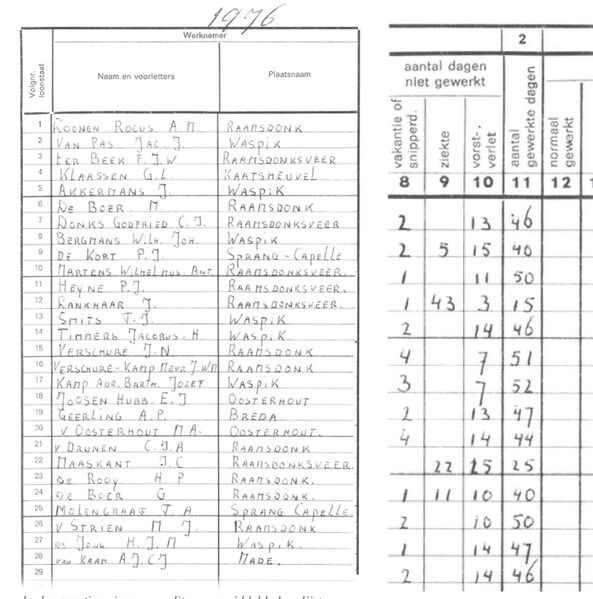 1976
Werknemer
Volgnr. loonstaat
Naam en voorletters
Plaatsnaam
1 Roonen Rocus A M Raamsdonk
2 Van Pas Jac. J. Waspik
3 ter Beek F. J. W Raamsdonksveer
4 Klaassen G. L. Kaatsheuvel
5 Akkermans J. Waspik
6 De Boer M. Raamsdonk
7 Donks Godfried C. J. Raamsdonksveer
8 Bergmans W. lh. Joh. Waspik
9 De Kort P. J. Sprang-Capelle
10 Martens Wilhelmus Ant. Raamsdonksveer.
11 Heyne P. J. Raamsdonksveer.
12 Lankhaar J. Raamsdonksveer.
13 Smits J. J. Waspik
14 Timmers Jacobus. H. Waspik.
15 Verschure J. N. Raamsdonk
16 Verschure-Kamp Mevr. J. WM Raamsdonk
17 Kamp Adr. Barth. Jozef Waspik
18 Joosen Hubb. E. J Oosterhout
19 Geerling A. P. Breda
20 v Oosterhout M. A. Oosterhout.
21 v Drunen C. J. A Raamsdonk
22 Maaskant J. C Raamsdonksveer
23 de Rooy H P Raamsdonk.
24 de Boer G Raamsdonk.
25 Molengraaf J. A Sprang Capelle.
26 v Strien M J. Raamsdonk
27 de Jong H. J. M Waspik.
28 van Kaam A. J. C J Made.
29
2
aantal dagen
niet gewerkt
vakantie of snipperd.
ziekte
vorst-, verlet
aantal gewerkte dagen
normaal gewerkt
8 9 10 11 12
2 13 46
2 5 15 40
1 11 50
1 43 3 15
2 14 46
4 7 51
3 7 52
2 13 47
4 14 44
22 25 25
1 11 10 40
2 10 50
1 14 47
2 14 46